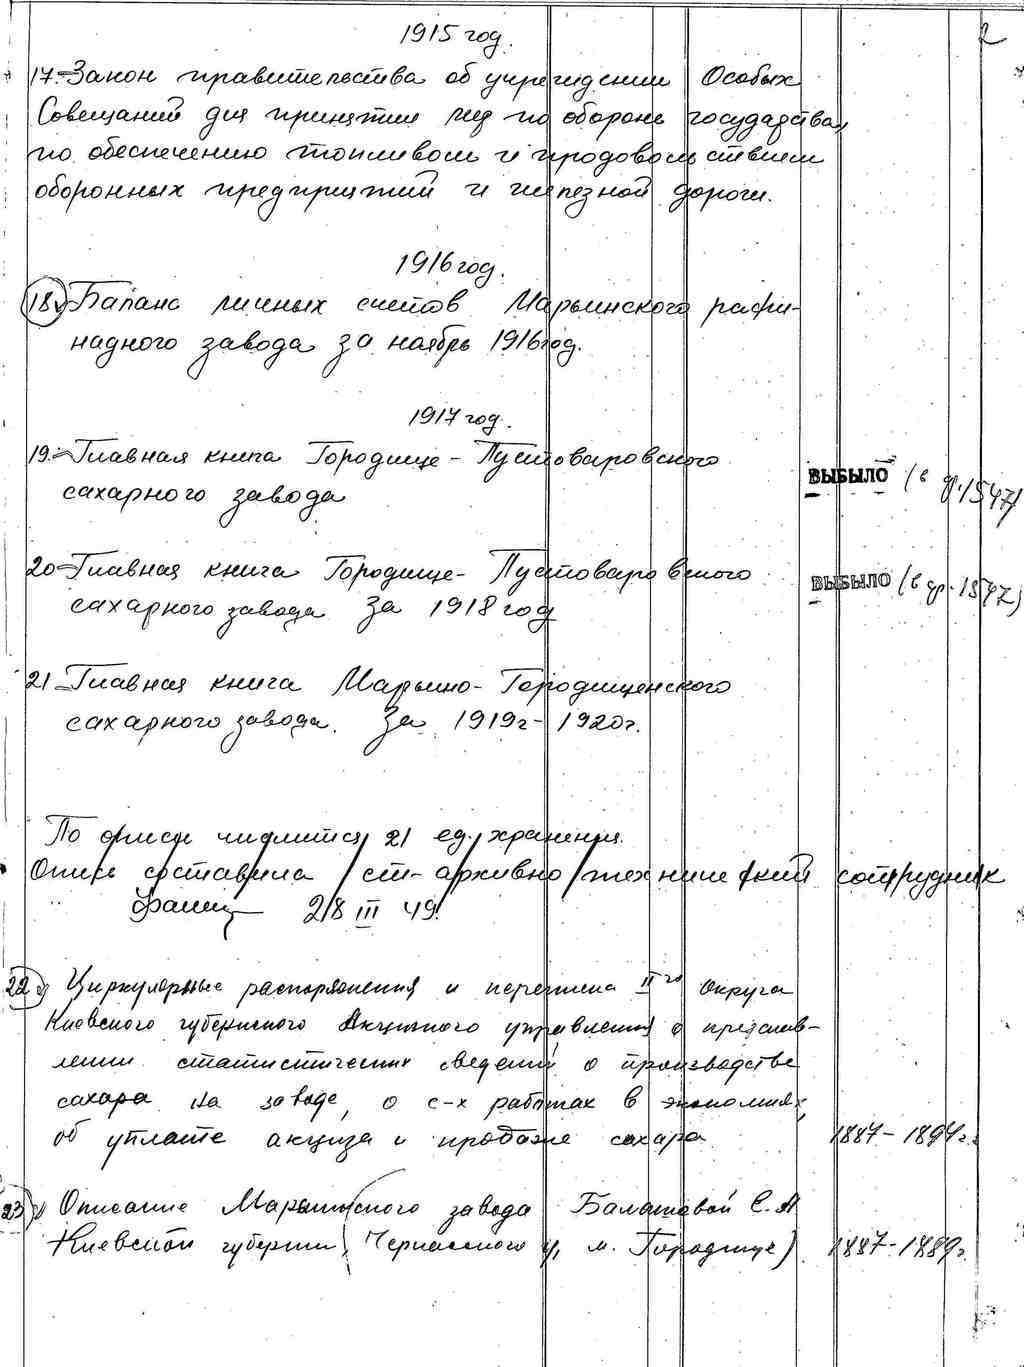 2
1915 год.
17. Закон правительства об учреждении Особых
Совещаний для принятии мер по обороне государства,
по обеспечению топливом и продовольствием
оборонных предприятий и железной дороги.
1916 год.
18. Баланс личных счетов Марьинского рафи-
надного завода за ноябрь 1916 год.
1917 год.
19. Главная книга Городище-Пустоваровского
сахарного завода
ВЫБЫЛО (в ф. 1547)
20 Главная книга Городище-Пустоваровского
сахарного завода за 1918 год
ВЫБЫЛО (в ф. 1547)
21 Главная книга Марьино-Городищенского
сахарного завода. За 1919г-1920г.
По описи числится 21 ед. хранения.
Опись составила ст. архивно технический сотрудник
28 III 49.
22 Циркулярные распоряжения и переписка II го округа
Киевского губернского Акцизного управления о представ-
лении статистических сведений о производстве
сахара на заводе, о с-х работах в экономиях,
об уплате акциза и продаже сахара 1887-1897г.
23 Описание Марьинского завода Балашевой Е. А
Киевской губернии (Черкасского у, м. Городище) 1887-1889г.